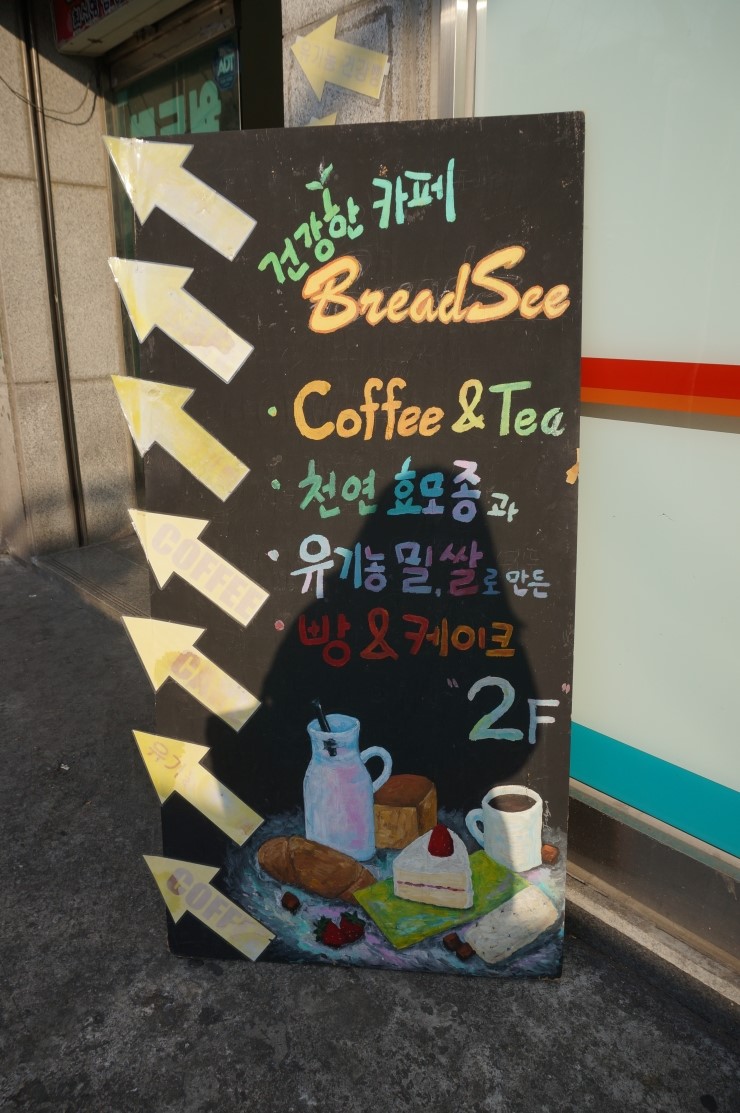 ADT
건강한 카페
BreadSee
• Coffee & Tea
• 천연 효모종과
• 유기농 밀, 쌀로 만든
• 빵 & 케이크
"2F"
COFFEE
COFFEE